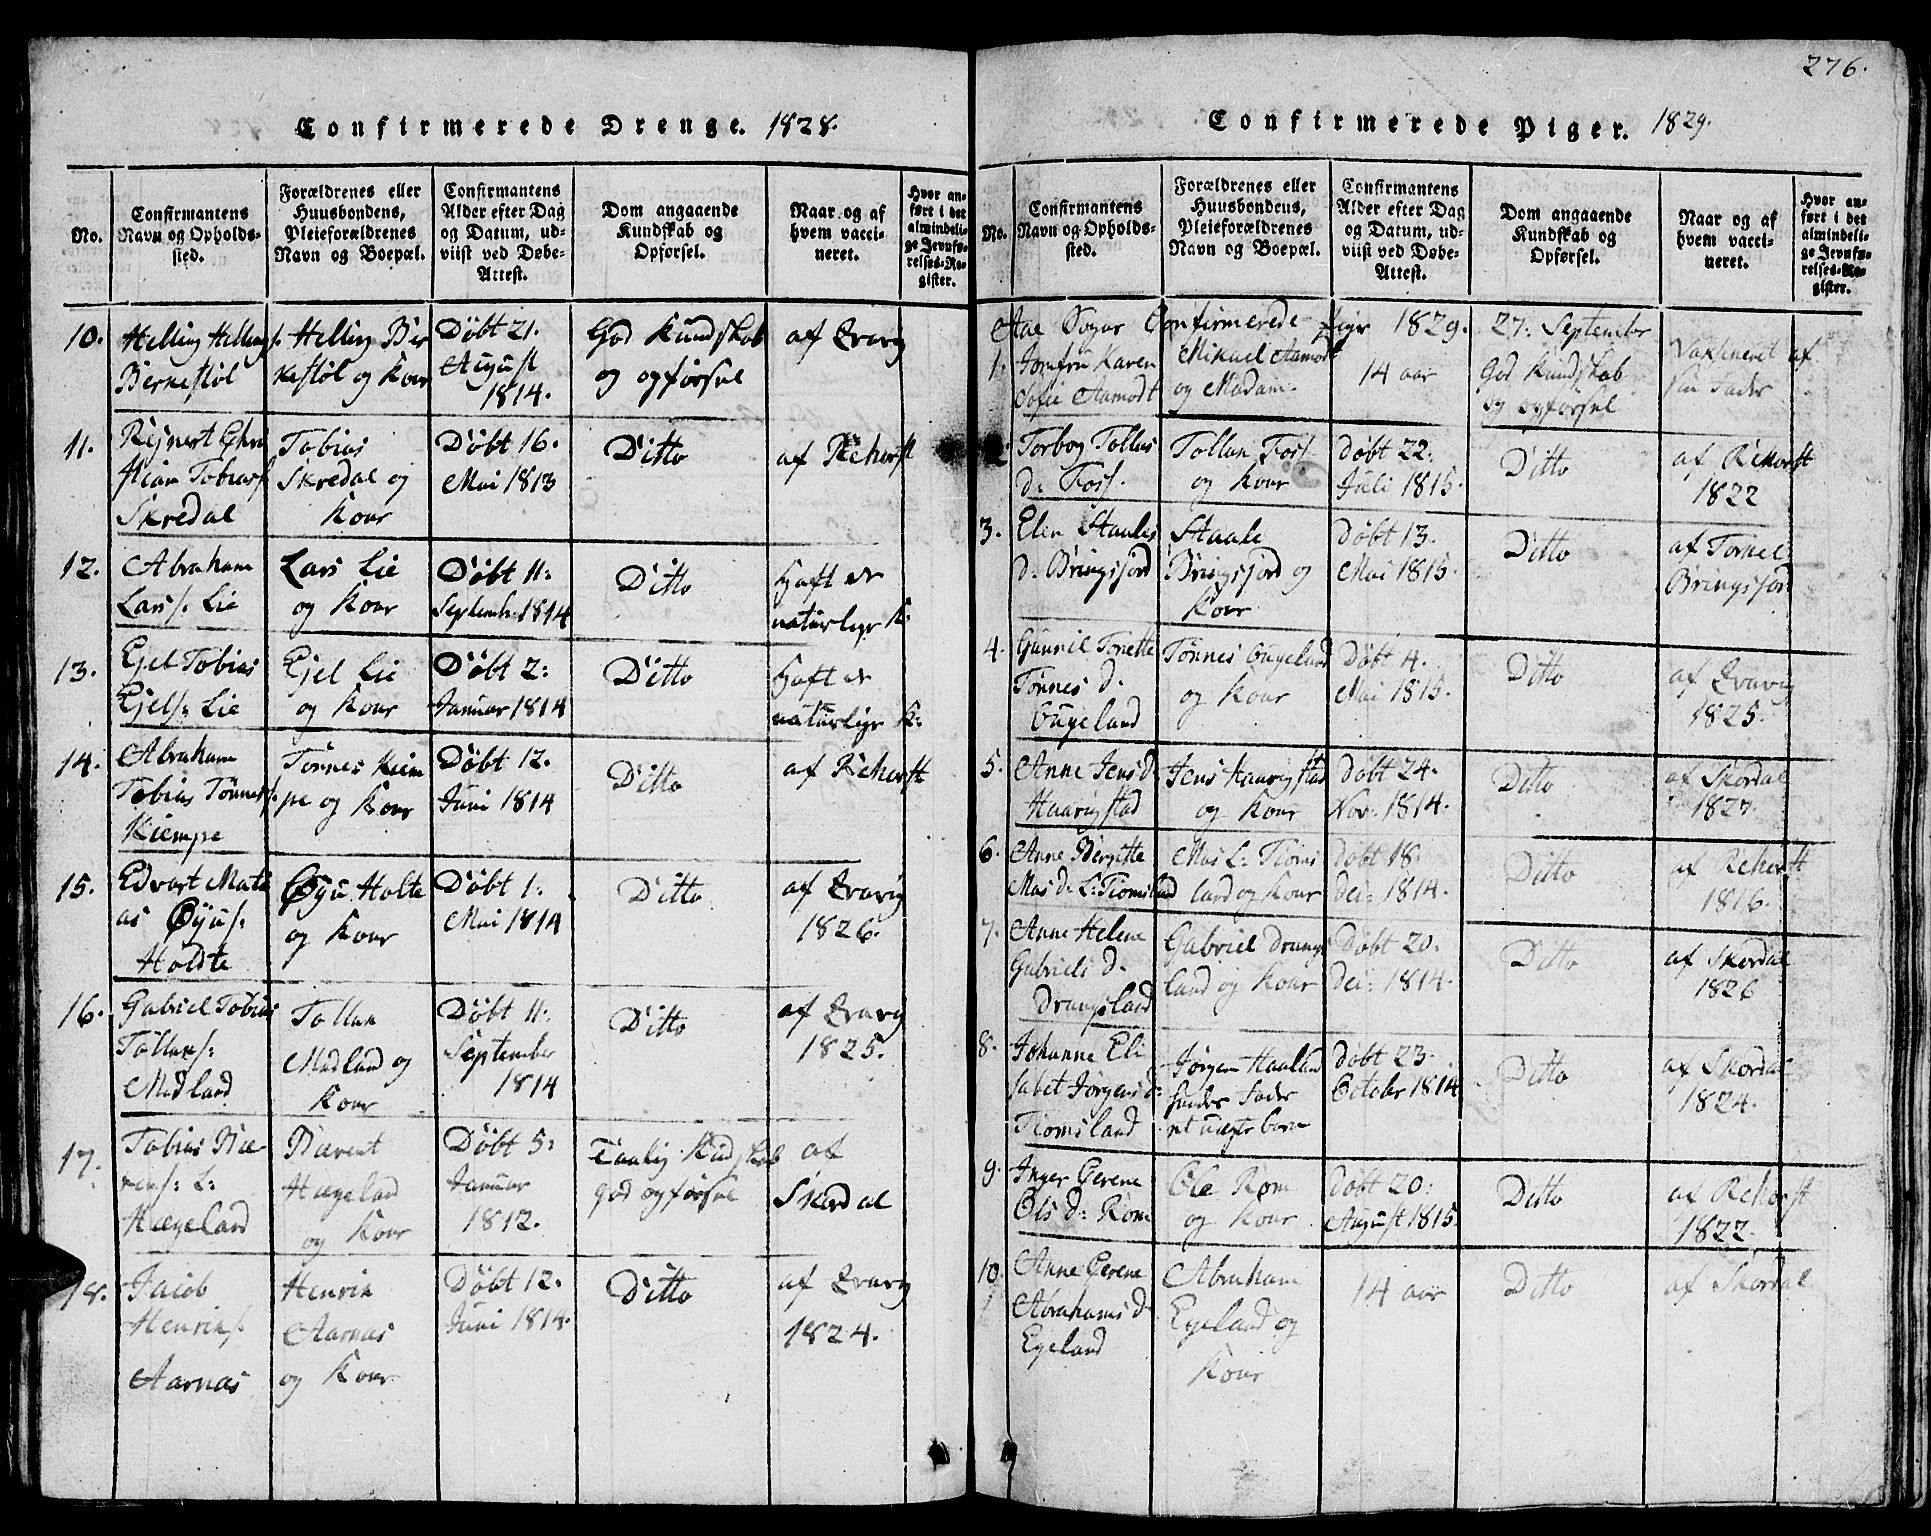 276.
Confirmerede Drenge. 1828.
No.
Confirmantens
Navn og Opholds-
sted.
Forældrenes eller
Huusbondens,
Pleieforældrenes
Navn og Boepæl.
Confirmantens
Alder efter Dag
og Datum, ud-
viist ved Døbe-
Attest.
Dom angaaende
Kundskab og
Opførsel.
Naar og af
hvem vacci-
neret.
Hvor an-
ført i det
almindeli-
ge Jevnfø-
relses-Re-
gister.
10. Helling Hellings:
Berkestøl
Helling Ber
kestøl og Kour
Døbt 21.
August
1814.
God Kundskab
og opførsel
af Qvavig
11. Rejnert Chri
stian Tobias:
Skredal
Tobias
Skredal og
Kour
Døbt 16.
Mai 1813
Ditto
af Rekerst
12. Abraham
Lars: Lie
Lars Lie
og Kour
Døbt 11:
Septemb: 1814
Ditto
Haft er
naturlige K:
13. Ejel Tobias
Ejels: Lie
Ejel Lie
og Kour
Døbt 2:
Januar 1814
Ditto
Haft er
naturlige K:
14. Abraham
Tobias Tønnes:
Kiempe
Tønnes Kiem
pe og Kour
Døbt 12.
Juni 1814
Ditto
af Rekerst
15. Edvart Mati
as Øyus:
Holdte
Øyu Holte
og Kour
Døbt 1:
Mai 1814
Ditto
af Qvavig
1826.
16. Gabriel Tobias
Tollaks:
Madland
Tollak
Madland og
Kour
Døbt 11:
September
1814
Ditto
af Qvavig
1825.
17. Tobias Bæ-
rens: L:
Hægeland
Bærent
Hægeland
og Kour
Døbt 5:
Januar
1812.
Taalig Kundskab
god opførsel
af
Skordal
18. Jacob
Henriks:
Aarnas
Henrik
Aarnas
og Kour
Døbt 12:
Juni 1814.
Ditto
af Qvavig
1824.
Confirmerede Piger. 1829.
No.
Confirmantens
Navn og Opholds-
sted.
Forældrenes eller
Huusbondens,
Pleieforældrenes
Navn og Boepæl.
Confirmantens
Alder efter Dag
og Datum, ud-
viist ved Døbe-
Attest.
Dom angaaende
Kundskab og
Opførsel.
Naar og af
hvem vacci-
neret.
Hvor an-
ført i det
almindeli-
ge Jevnfø-
relses-Re-
gister.
Aae Sogns Confirmerede Piger 1829. 27: September
1. Jomfru Karen
Sofie Aamodt
Mikael Aamodt
og Madam.
14 aar
God Kundskab
og opførsel
Vaksineret af
sin Fader
2. Torbog Tollas
d: Foss.
Tollak Foss
og Kour
Døbt 22:
Juli 1815.
Ditto
af Rekerst
1822
3. Elen Staales
d: Bringsjord
Staale
Bringsjord og
Kour
Døbt 13.
Mai 1815.
Ditto
af Tornel
Bringsjord
4. Gunnil Tonette
Tønnes d.
Øugeland
Tønnes Øugeland
og Kour
Døbt 4.
Mai 1815.
Ditto
af Qvavig
1825.
5. Anne Jens d
Haarigstad
Jens Haarigstad
og Kour
Døbt 24.
Nov: 1814.
Ditto
af Skordal
1827.
6. Anne Bergitte
Mas d: L: Tiomsland
Mas L: Tioms
land og Kour
Døbt 18.
Dec: 1814.
Ditto
af Rekerst
1816.
7. Anne Helene
Gabriels d.
Drangsland
Gabriel Drangs
land og Kour
Døbt 20:
Dec: 1814.
Ditto
af Skordal
1826
8. Johanne Eli
sabet Jørgens d:
Tiomsland
Jørgen Haaland
hendes Fader
et uægte barn
Døbt 23.
October 1814
Ditto
af Skordal
1824.
9. Inger Gerene
Ols d: Rom
Ole Rom
og Kour
Døbt 20:
August 1815
Ditto
af Rekerst
1822.
10 Anne Gerene
Abrahams d.
Egeland
Abraham
Egeland og
Kour
14 aar
Ditto
af Skordal